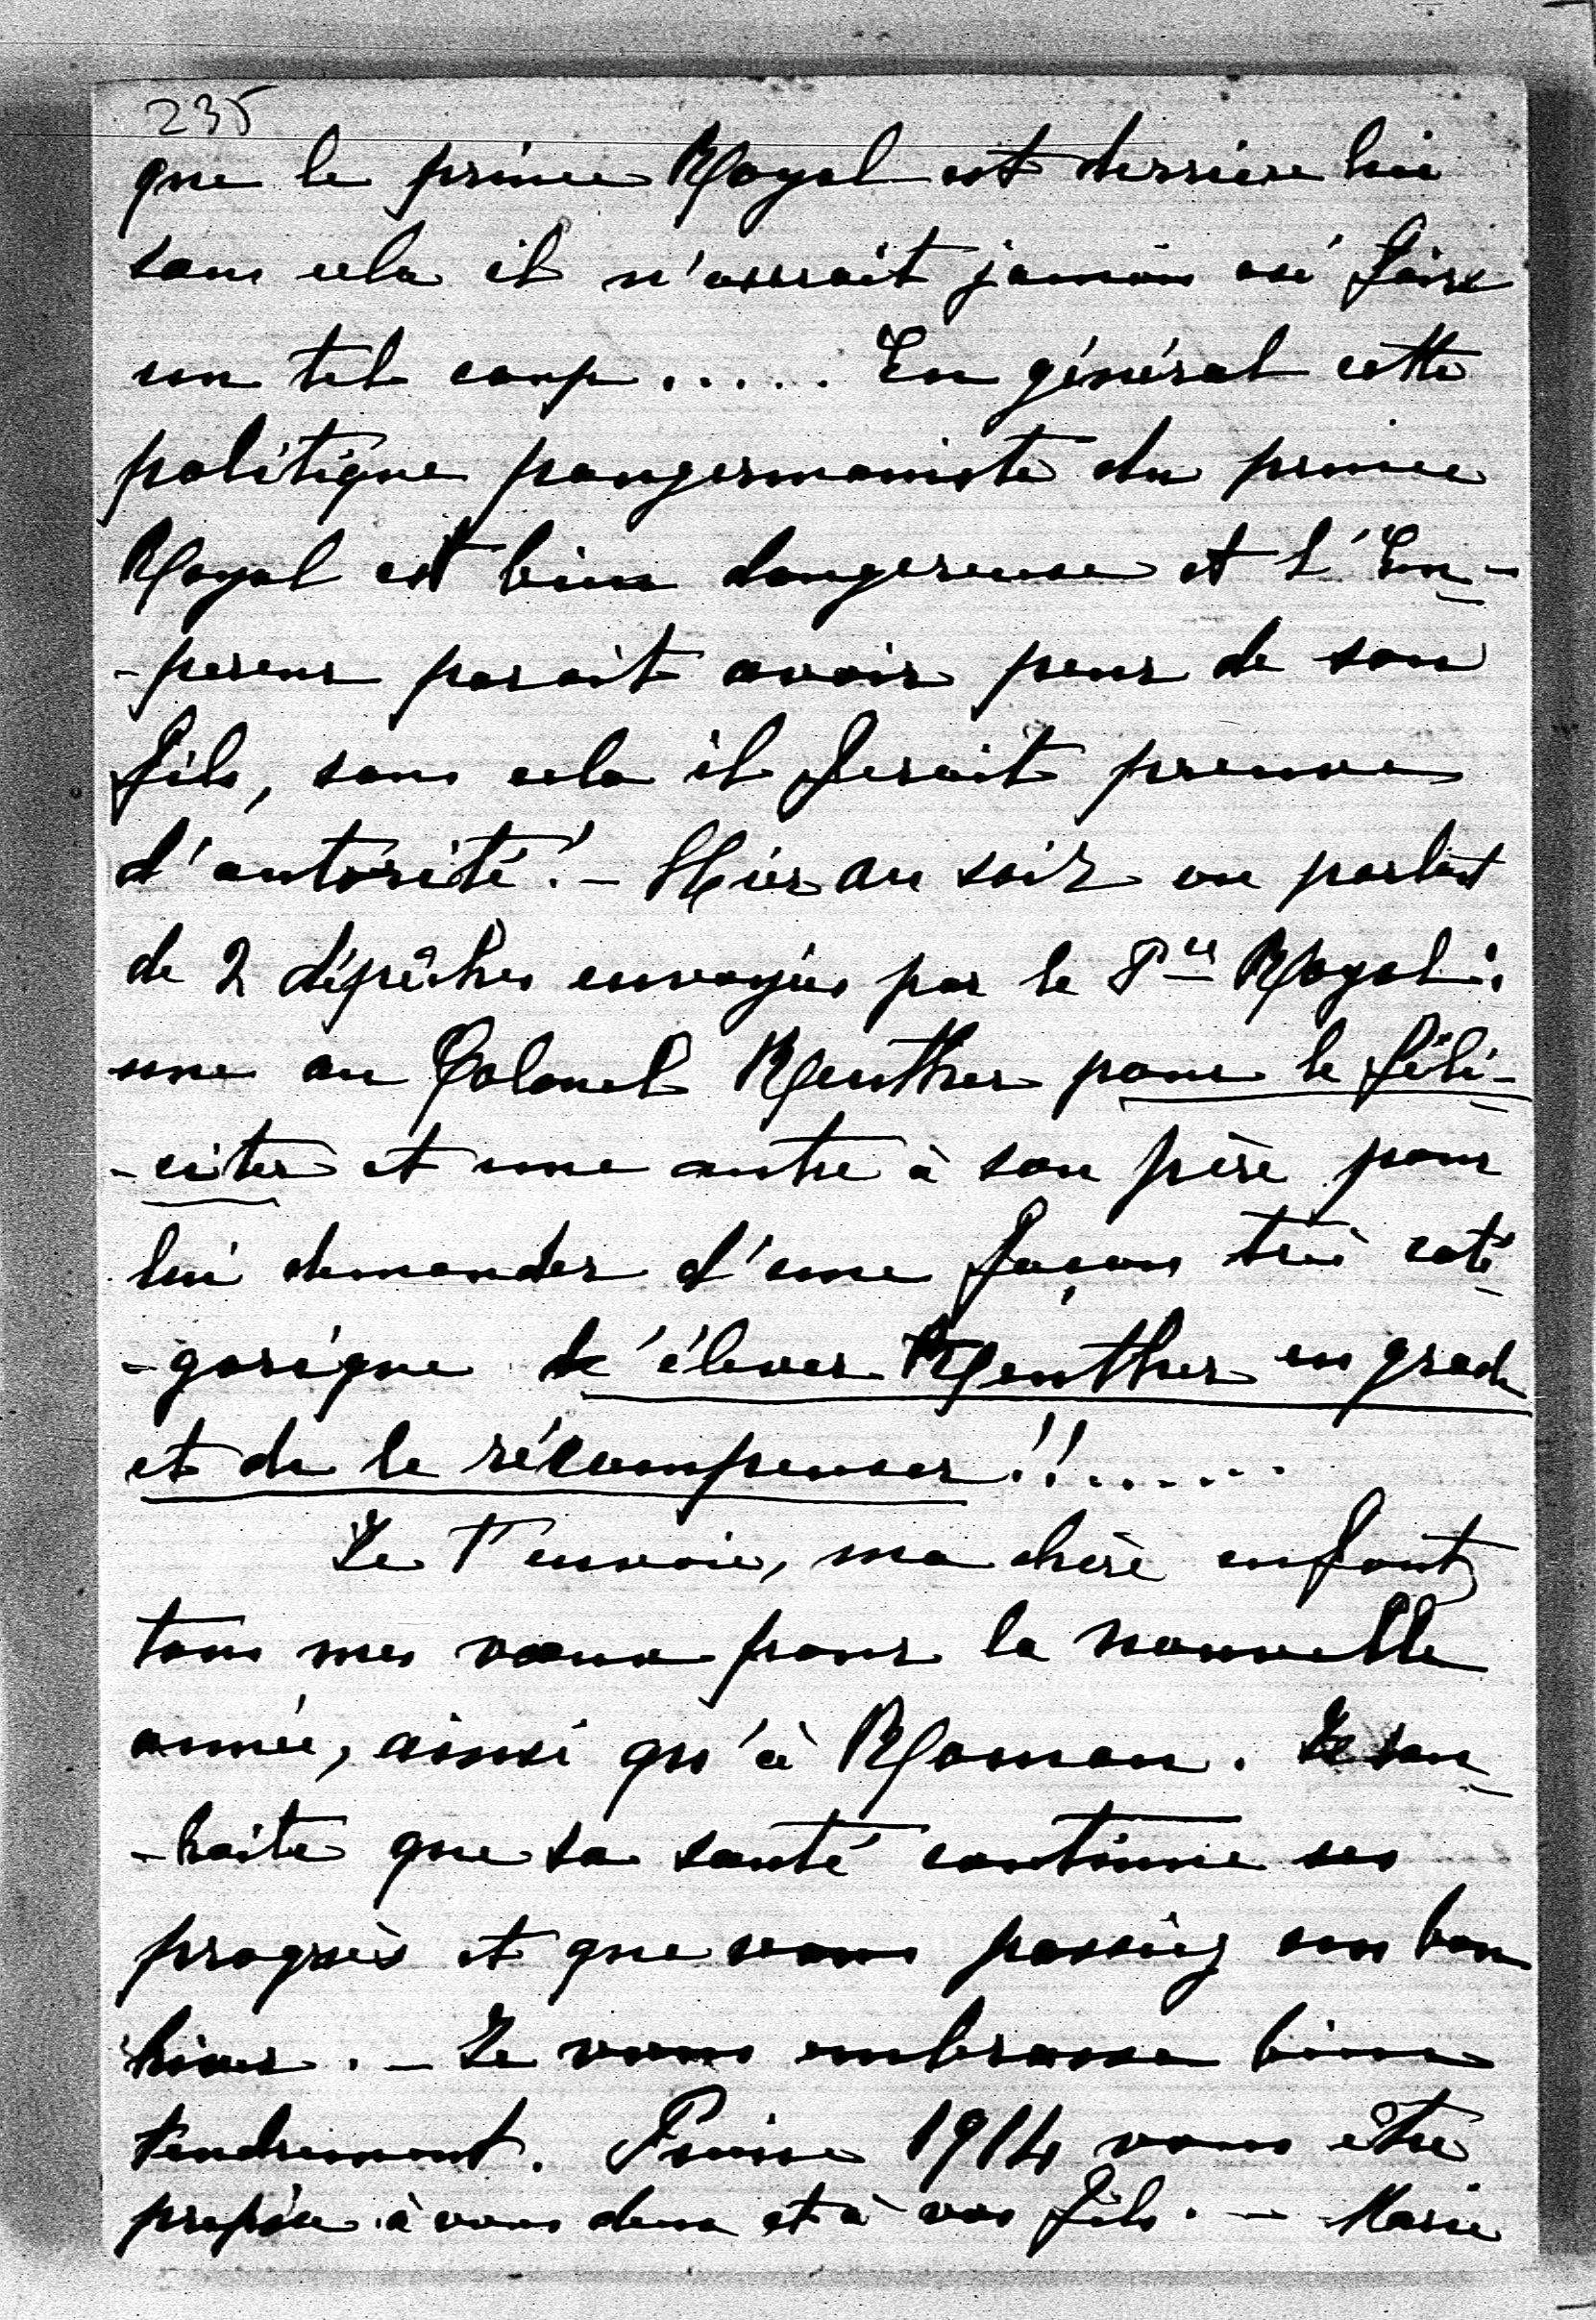 235
que le prince Royal est derrière lui
sans cela il n'aurait jamais osé faire
un tel coup ..... En général cette
politique pangermaniste du prince
Royal est bien dangereuse et l'Em-
-pereur parait avoir peur de son
fils, sans cela il ferait preuve
d'autorité! - Hier au soir on parlait
de 2 dépêches envoyées par le Pce Royal:
une au Colonel Reuther pour le féli-
-citer et une autre à son père pour
lui demander d'une façon très caté-
-gorique d'élever Reuther en grade
et de le récompenser!!......
Je T'envoie, ma chère enfant,
tous mes vœux pour la nouvelle
année, ainsi qu'à Roman. Je sou-
-haite que sa santé continue ses
progrès et que vous passiez un bon
hiver. - Je vous embrasse bien
tendrement. Puisse 1914 vous être
propice à vous deux et à vos fils. - Marie